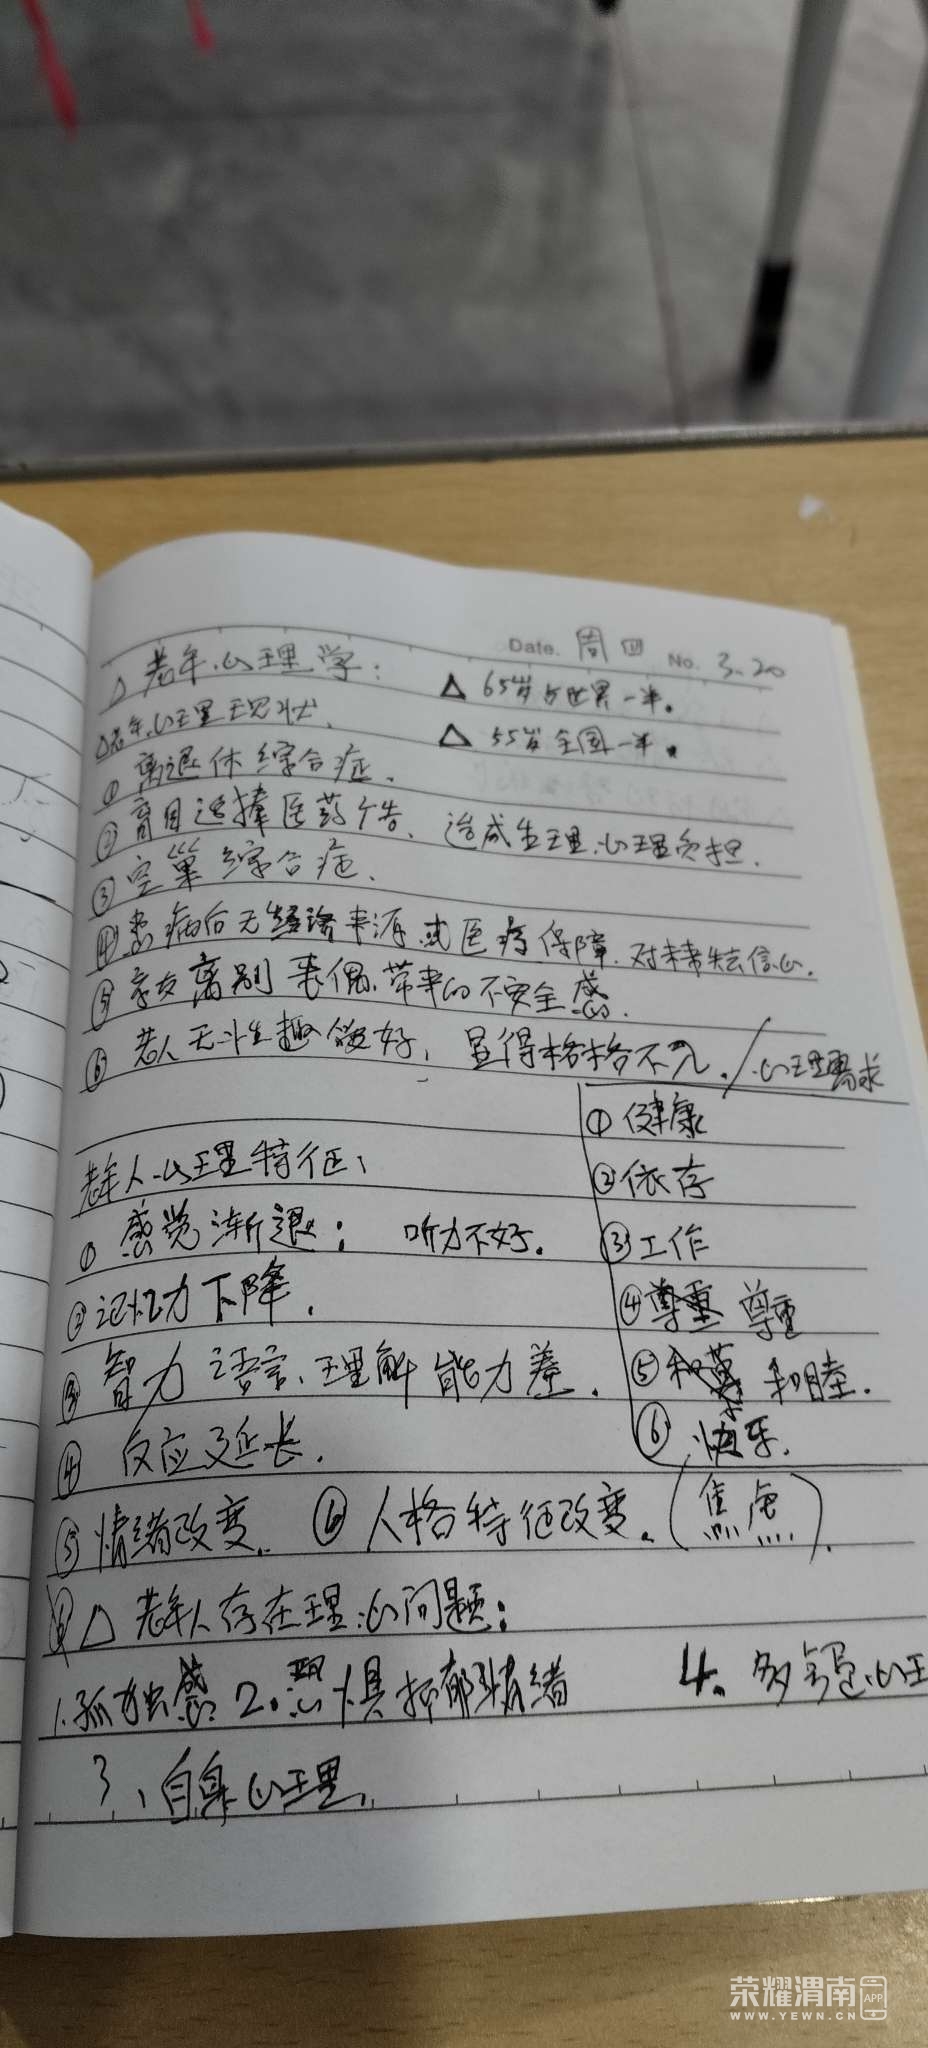 Date. 周四 No. 3.20
△ 老年心理学:
△ 65岁占世界一半。
△老年心理现状、
△ 55岁全国一半。
① 离退休综合症、
② 盲目选择医药广告、造成生理、心理负担、
③ 空巢综合症、
④ 患病后无经济来源或医疗保障、对未来失去信心、
⑤ 亲友离别丧偶、带来的不安全感、
⑥ 老人无业趣爱好、显得格格不入。/心理需求
① 健康
② 依存
③ 工作
④ 尊重 尊重
⑤ 和 和睦.
⑥ 快乐.
老年人心理特征、
① 感觉渐退: 听力不好.
② 记忆力下降.
③ 智力 语言、理解能力差.
④ 反应延长.
⑤ 情绪改变. ⑥ 人格特征改变。(焦虑).
△ 老年人存在理心问题:
1.孤独感 2.恐惧抑郁情绪 4、多疑心理
3、自身心理、
荣耀渭南 APP
WWW.YEWN.CN